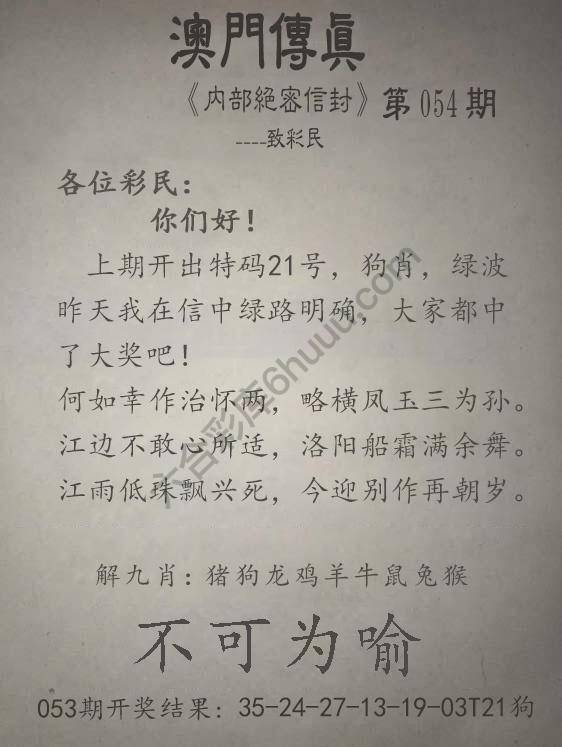 澳門傳眞
《内部絕密信封》第054期
----致彩民
各位彩民:
你们好!
上期开出特码21号，狗肖，绿波
昨天我在信中绿路明确，大家都中
了大奖吧!
何如幸作治怀两，略横凤玉三为孙。
江边不敢心所适，洛阳船霜满余舞。
江雨低珠飘兴死，今迎别作再朝岁。
解九肖:猪狗龙鸡羊牛鼠兔猴
不可为喻
053期开奖结果:35-24-27-13-19-03T21狗
六合彩库6huuu.com